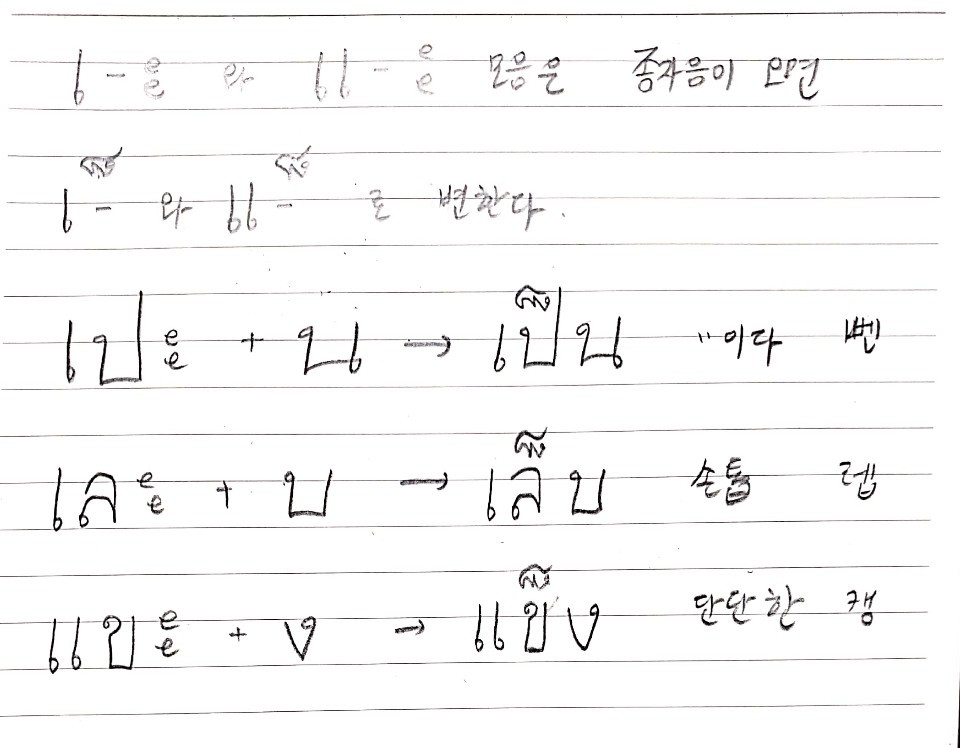 เ-ะ 와 แ-ะ 모음은 종자음이 오면
เ-็ 와 แ-็ 로 변한다.
เปะ + น → เป็น "이다 뻰
เละ + บ → เล็บ 손톱 렙
แขะ + ง → แข็ง 단단한 캥